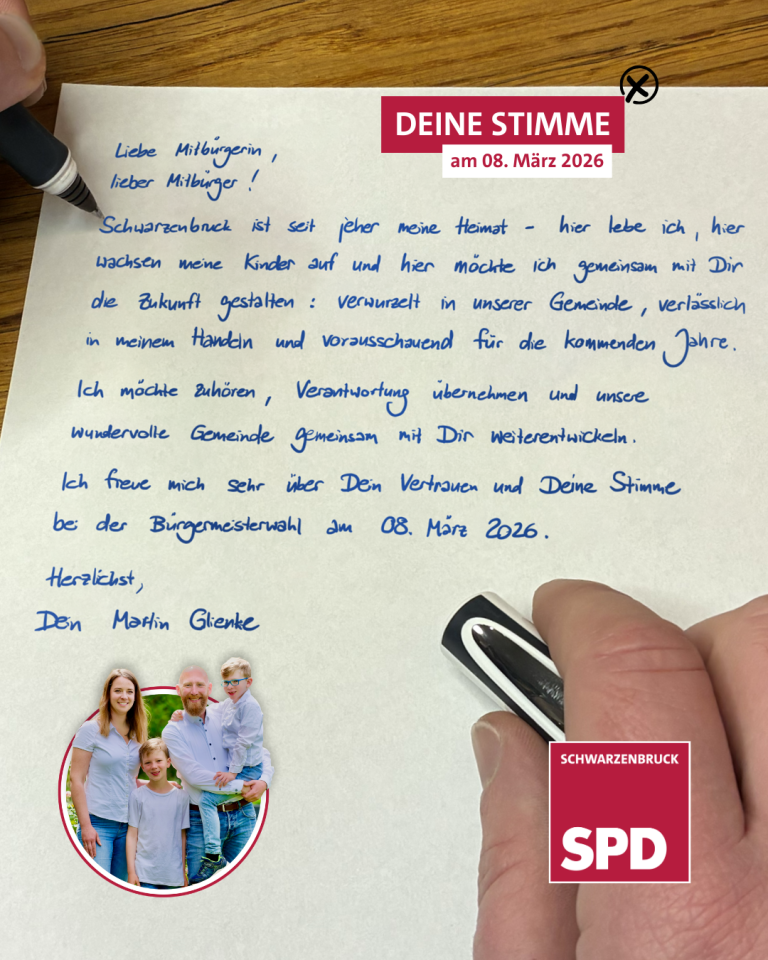 DEINE STIMME
am 08. März 2026
Liebe Mitbürgerin,
lieber Mitbürger!
Schwarzenbruck ist seit jeher meine Heimat – hier lebe ich, hier
wachsen meine Kinder auf und hier möchte ich gemeinsam mit Dir
die Zukunft gestalten: verwurzelt in unserer Gemeinde, verlässlich
in meinem Handeln und vorausschauend für die kommenden Jahre.
Ich möchte zuhören, Verantwortung übernehmen und unsere
wundervolle Gemeinde gemeinsam mit Dir weiterentwickeln.
Ich freue mich sehr über Dein Vertrauen und Deine Stimme
bei der Bürgermeisterwahl am 08. März 2026.
Herzlichst,
Dein Martin Glienke
SCHWARZENBRUCK
SPD